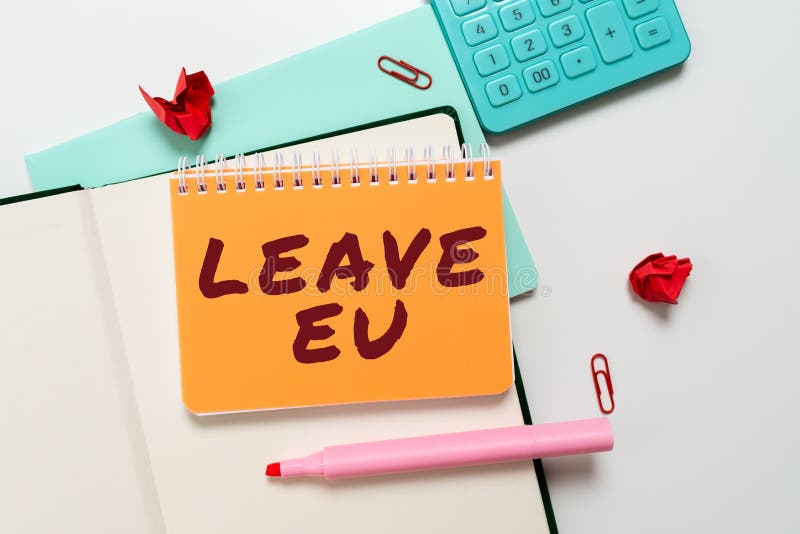 LEAVE
EU
4 5 6
1 2 3 +
0 00 . =